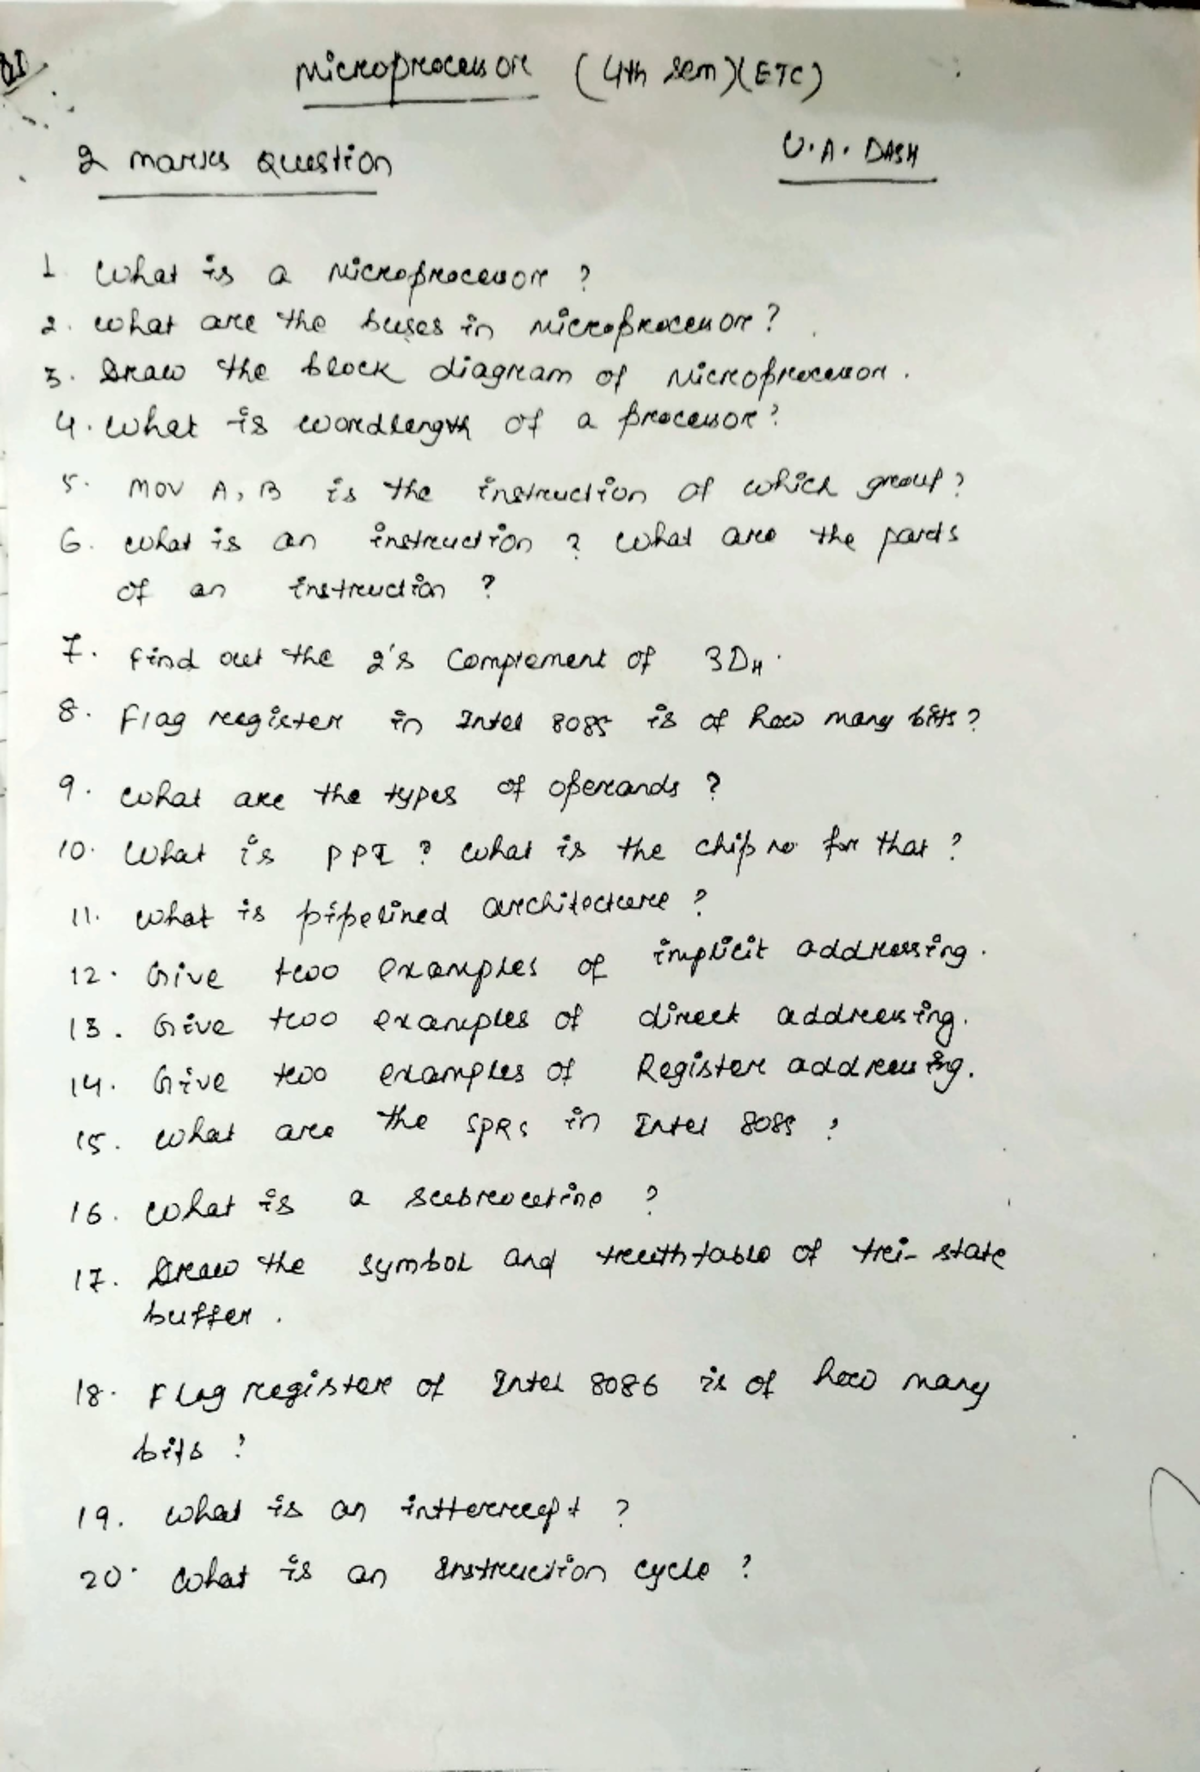 Microprocessor (4th sem)(ETC)
2 marks question
U.A. DASH
1. What is a Microprocessor ?
2. What are the buses in Microprocessor ?
3. Draw the block diagram of Microprocessor.
4. What is wordlength of a processor ?
5. MOV A, B is the instruction of which group ?
6. What is an instruction ? What are the parts
of an instruction ?
7. Find out the 2's Complement of 3DH.
8. Flag register in Intel 8085 is of how many bits ?
9. What are the types of operands ?
10. What is PPI ? What is the chip no for that ?
11. What is pipelined architecture ?
12. Give two examples of implicit addressing.
13. Give two examples of direct addressing.
14. Give two examples of Register addressing.
15. What are the SPRs in Intel 8085 ?
16. What is a subroutine ?
17. Draw the symbol and truth table of tri-state
buffer.
18. Flag register of Intel 8086 is of how many
bits ?
19. What is an intterrupt ?
20. What is an Instruction cycle ?